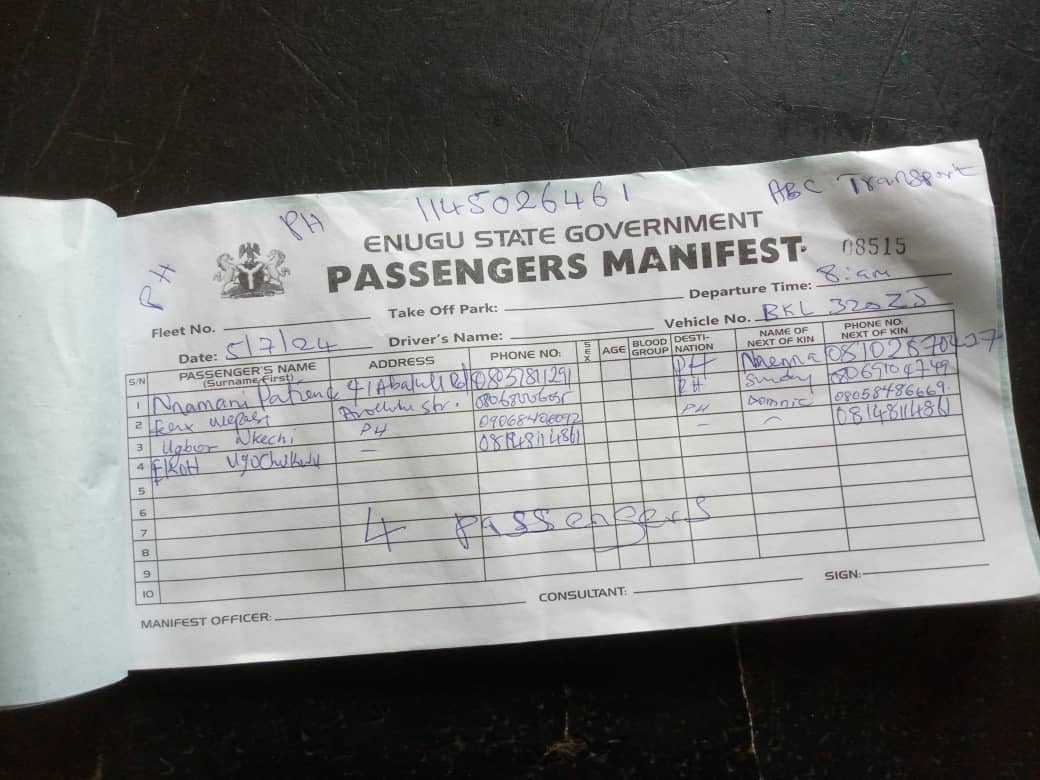 PH 1145026461 ABC Transport
ENUGU STATE GOVERNMENT
PASSENGERS MANIFEST 08515
Fleet No. Take Off Park: Departure Time: 8:am
Date: 5/7/24 Driver's Name: Vehicle No. BKL 320ZJ
S/N PASSENGER'S NAME (Surname First) ADDRESS PHONE NO: SEX AGE BLOOD GROUP DESTI-NATION NAME OF NEXT OF KIN PHONE NO: NEXT OF KIN
1 Nnamani Patience 41 PH Nnenna
2 str. PH Sunday 08069104749
3 Ugbor Nkechi PH PH Domnic 08058486669.
4 Ekoh Ugochukwu — 08148114861 — 08148114861
5
6
7
8
9
10
4 passengers
MANIFEST OFFICER: CONSULTANT: SIGN: